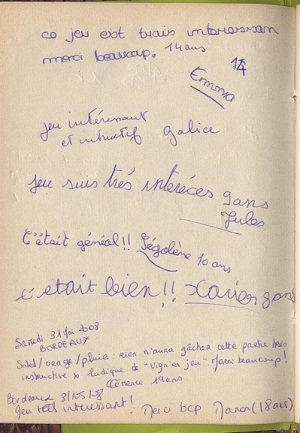 ce jeu est trais interessan
merci beaucoup. 14 ans
Emma 14
jeu intéressant
et instructif Galice
jeu suis trés intéréces 9 ans
Jules
C'était génial!! Ségolène 10 ans
c'etait bien!! Xavier 9 ans
Samedi 31 Mai 2008
BORDEAUX
Soleil/orage/pluie: rien n'aura gâcher cette partie très
instructive et ludique de "Vign'en jeu". Merci beaucoup!
19 ans
Bordeaux 31/5/08
Jeu très intéressant! Merci bcp Manon (18 ans)